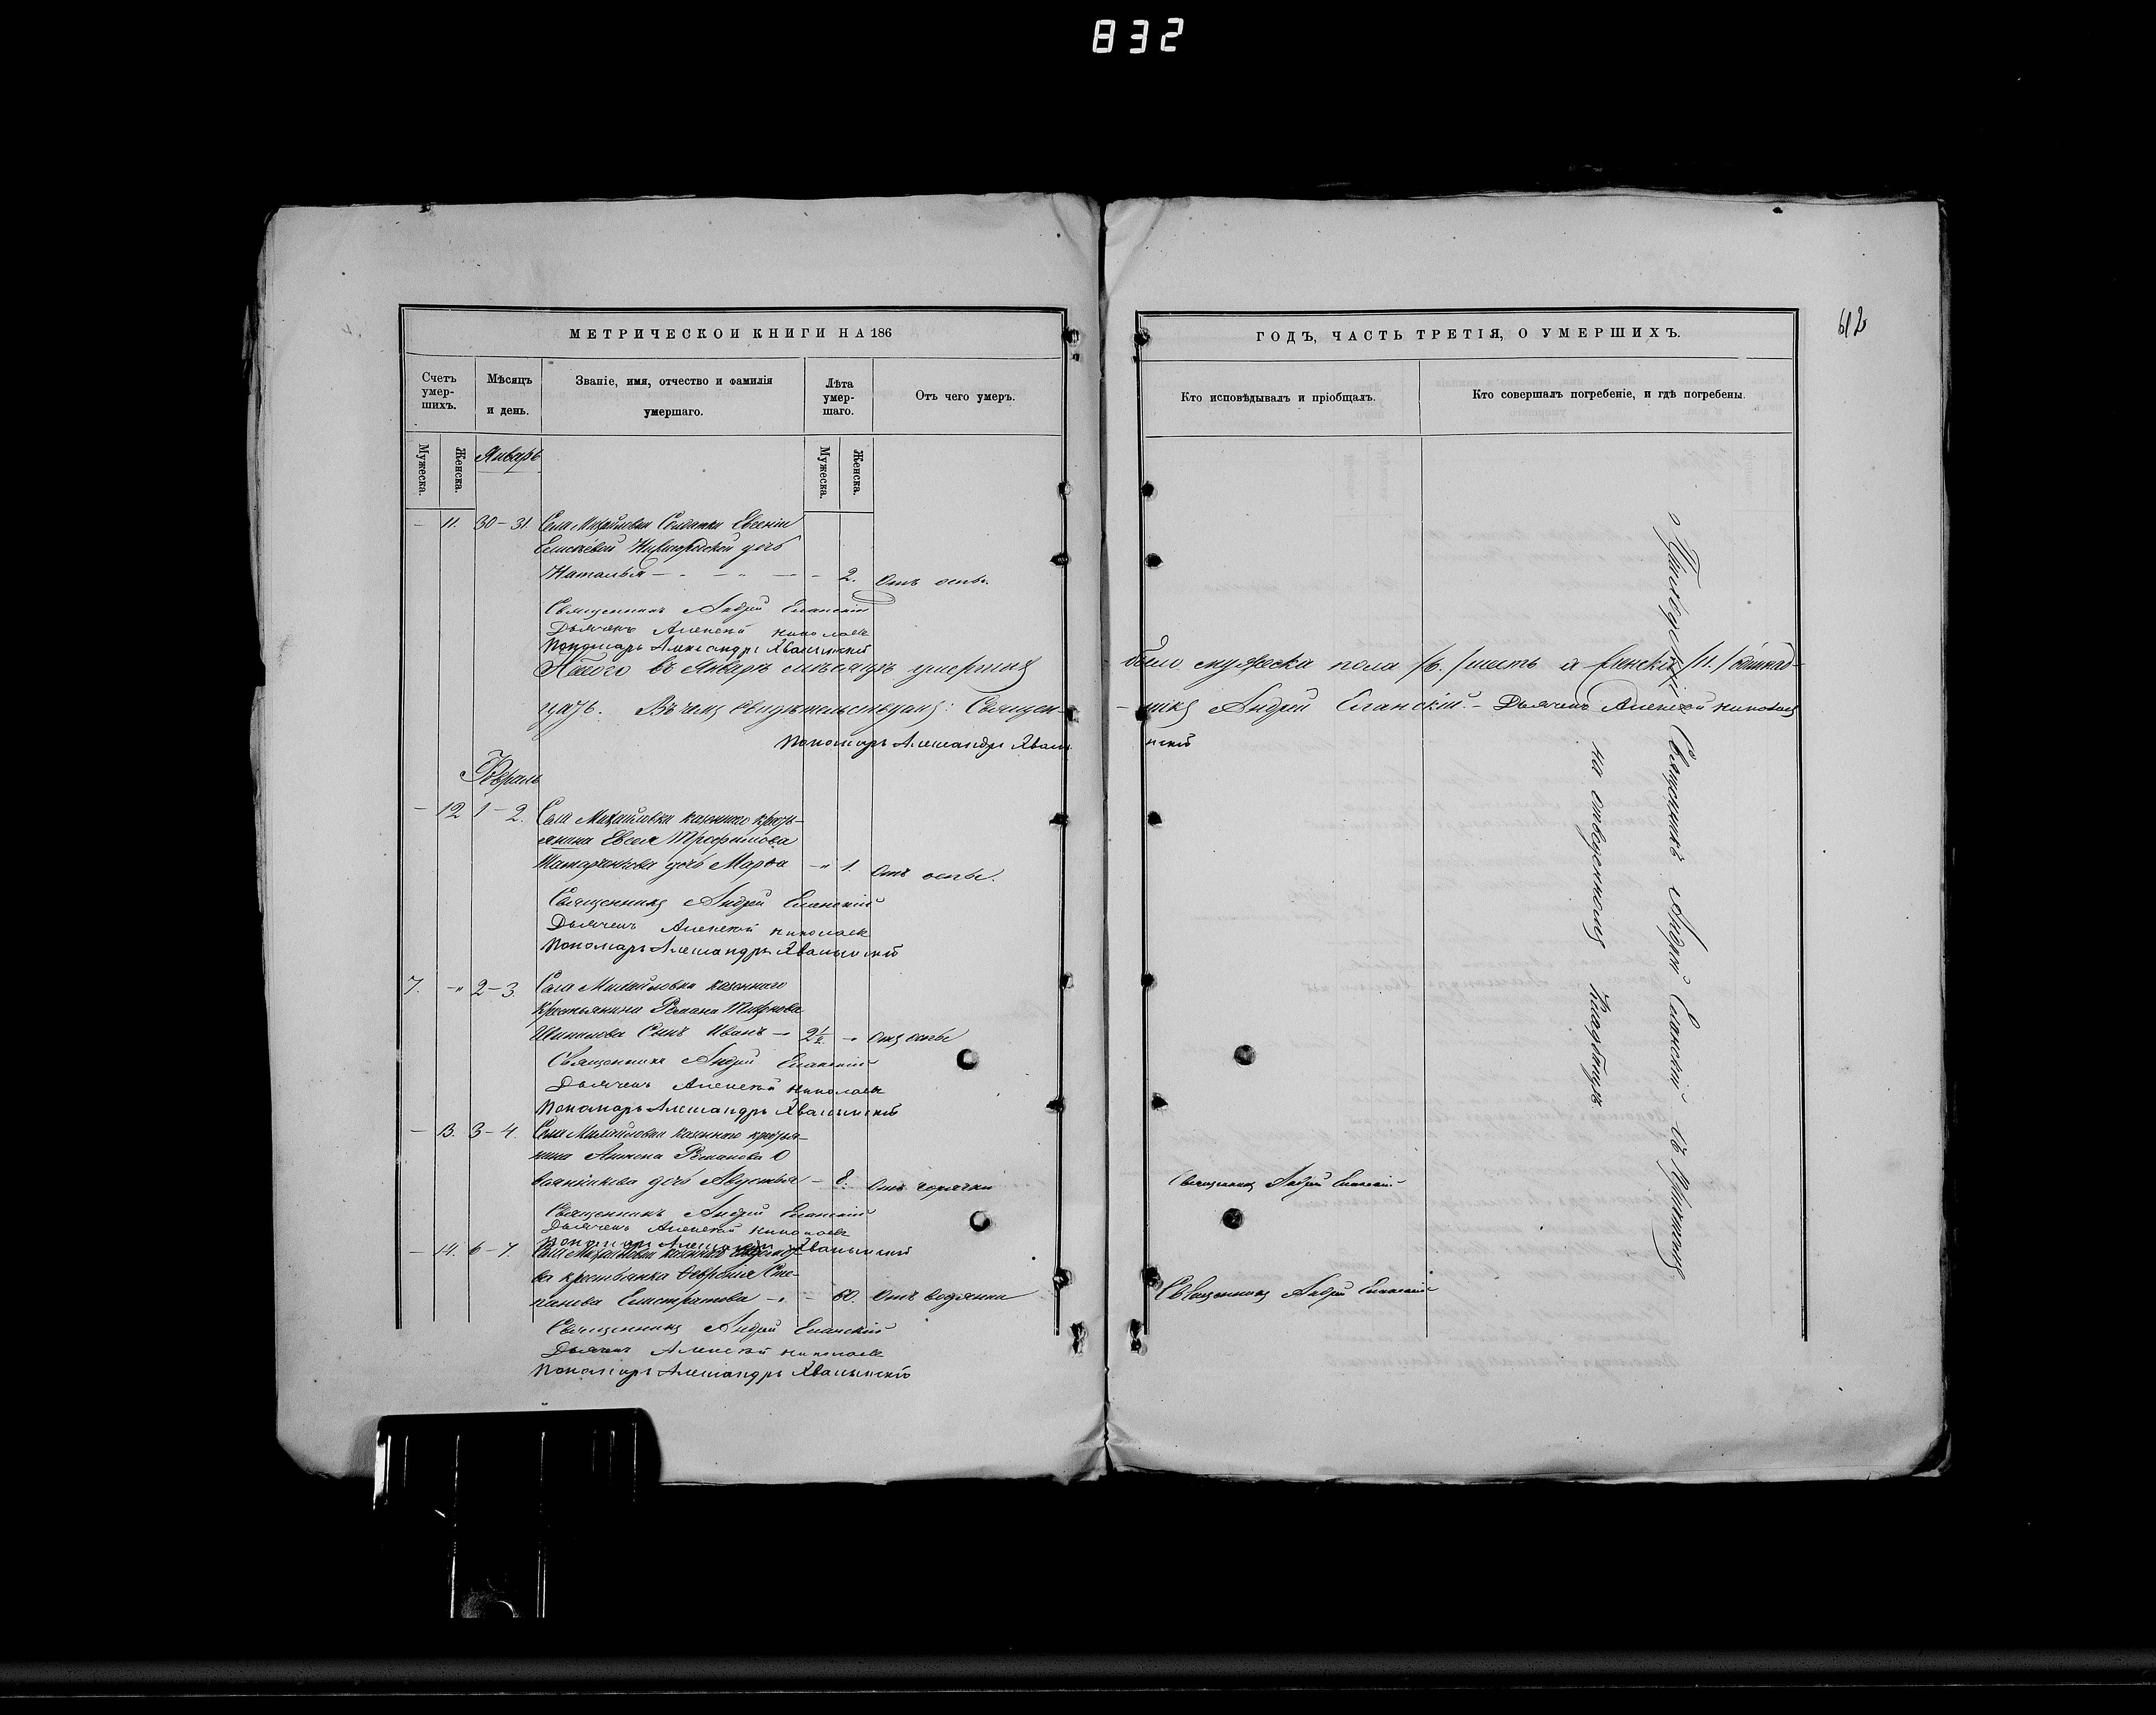 832
МЕТРИЧЕСКОЙ КНИГИ НА 186
Счетъ умер-шихъ.
Мѣсяцъ и день.
Званіе, имя, отчество и фамилія умершаго.
Лѣта умер-шаго.
Отъ чего умеръ.
Мужеска.
Женска.
Мужеска.
Женска.
Январь
— 11. 30–31. Села Михайловки Солдатки Евгеніи
дочь
Наталья — 2. Отъ оспы.
Священникъ Андрей Еланскій
Дьячекъ Алексѣй Николаевъ
Пономарь Александръ Хвалынскій
Всего въ Январѣ мѣсяцѣ умершихъ
цать. Въ чемъ свидѣтельствуемъ: Священ-
Пономарь Александръ Хвалы
Февраль
— 12 1–2. Села Михайловки казеннаго кресть-
янина Евсея Трофимова
дочь Марѳа — 1. Отъ оспы.
Священникъ Андрей Еланскій
Дьячекъ Алексѣй Николаевъ
Пономарь Александръ Хвалынскій
7. — 2–3. Села Михайловки казеннаго
крестьянина Романа
Сынъ Иванъ — 2½ — Отъ оспы
Священникъ Андрей Еланскій
Дьячекъ Алексѣй Николаевъ
Пономарь Александръ Хвалынскій
— 13. 3–4. Села Михайловки казеннаго крестья-
нина Антона Романова О
дочь Авдотья — 8. Отъ горячки
Священникъ Андрей Еланскій
Дьячекъ Алексѣй Николаевъ
Пономарь Александръ Хвалынскій
— 14. 6–7. Села Михайловки
крестьянка Февронія Сте-
панова Елистратова — 60. Отъ водянки
Священникъ Андрей Еланскій
Дьячекъ Алексѣй Николаевъ
Пономарь Александръ Хвалынскій
612
ГОДЪ, ЧАСТЬ ТРЕТІЯ, О УМЕРШИХЪ.
Кто исповѣдывалъ и пріобщалъ.
Кто совершалъ погребеніе, и гдѣ погребены.
было мужеска пола /6./ шесть а женска /11./ одиннад-
никъ Андрей Еланскій. – Дьячекъ Алексѣй Николаевъ
нскій
Священникъ Андрей Еланскій
Священникъ Андрей Еланскій
Священникъ Андрей Еланскій съ причтомъ
на отведенномъ кладбищѣ